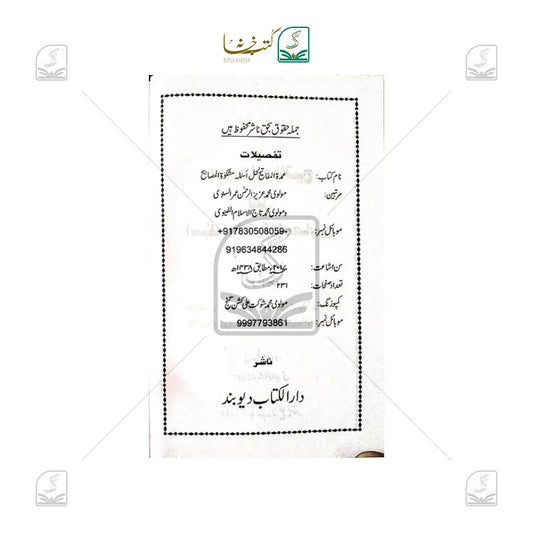 کتب خانہ
جملہ حقوق بحق ناشر محفوظ ہیں
تفصیلات
نام کتاب: عمدۃ المفاتیح لحل أسئلہ مشکوٰۃ المصابیح
مرتبین: مولوی محمد عزیز الرحمٰن عمر
ومولوی محمد تاج الاسلام
موبائل نمبر: +917830508059-
919634844286
سن اشاعت: ۲۰۱۷ء مطابق ۱۴۳۸ھ
تعداد صفحات: ۲۳۱
کمپوزنگ: مولوی محمد شوکت علی کشن گنج
موبائل نمبر: 9997793861
ناشر
دارالکتاب دیوبند